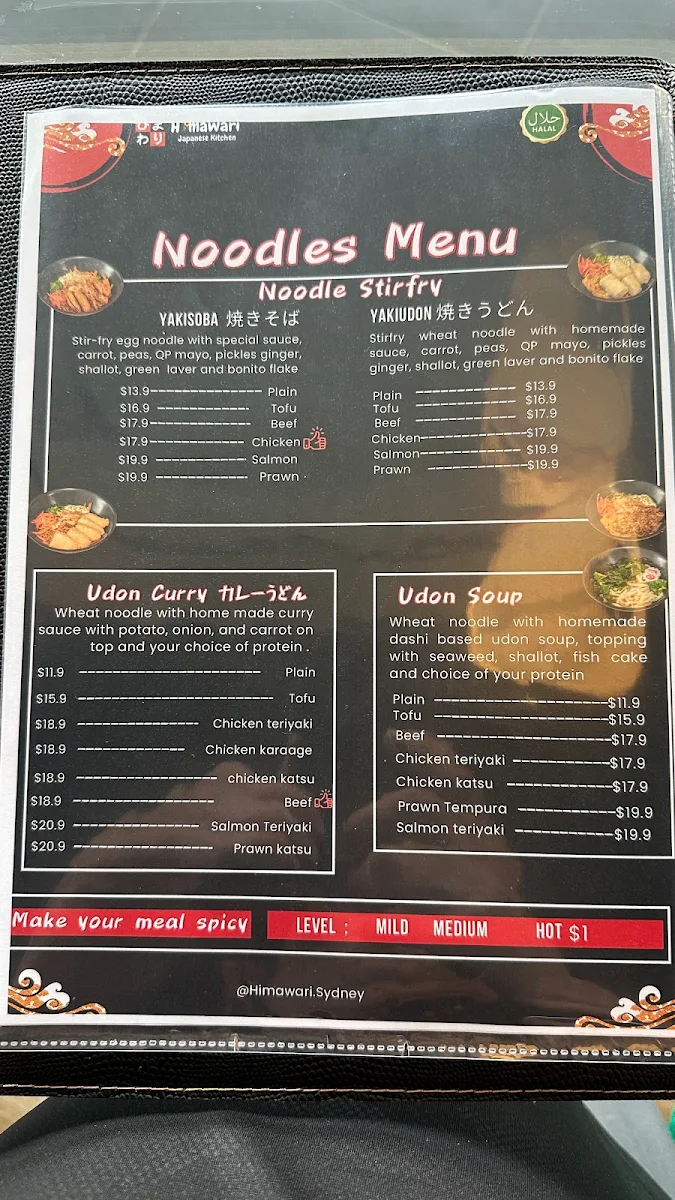 ひま
わり
Himawari
Japanese Kitchen
حلال
HALAL
Noodles Menu
Noodle Stirfry
YAKISOBA 焼きそば
Stir-fry egg noodle with special sauce,
carrot, peas, QP mayo, pickles ginger,
shallot, green laver and bonito flake
$13.9 Plain
$16.9 Tofu
$17.9 Beef
$17.9 Chicken
$19.9 Salmon
$19.9 Prawn
YAKIUDON 焼きうどん
Stirfry wheat noodle with homemade
sauce, carrot, peas, QP mayo, pickles
ginger, shallot, green laver and bonito flake
Plain $13.9
Tofu $16.9
Beef $17.9
Chicken $17.9
Salmon $19.9
Prawn $19.9
Udon Curry カレーうどん
Wheat noodle with home made curry
sauce with potato, onion, and carrot on
top and your choice of protein .
$11.9 Plain
$15.9 Tofu
$18.9 Chicken teriyaki
$18.9 Chicken karaage
$18.9 chicken katsu
$18.9 Beef
$20.9 Salmon Teriyaki
$20.9 Prawn katsu
Udon Soup
Wheat noodle with homemade
dashi based udon soup, topping
with seaweed, shallot, fish cake
and choice of your protein
Plain $11.9
Tofu $15.9
Beef $17.9
Chicken teriyaki $17.9
Chicken katsu $17.9
Prawn Tempura $19.9
Salmon teriyaki $19.9
Make your meal spicy
LEVEL : MILD MEDIUM HOT $1
@Himawari.Sydney